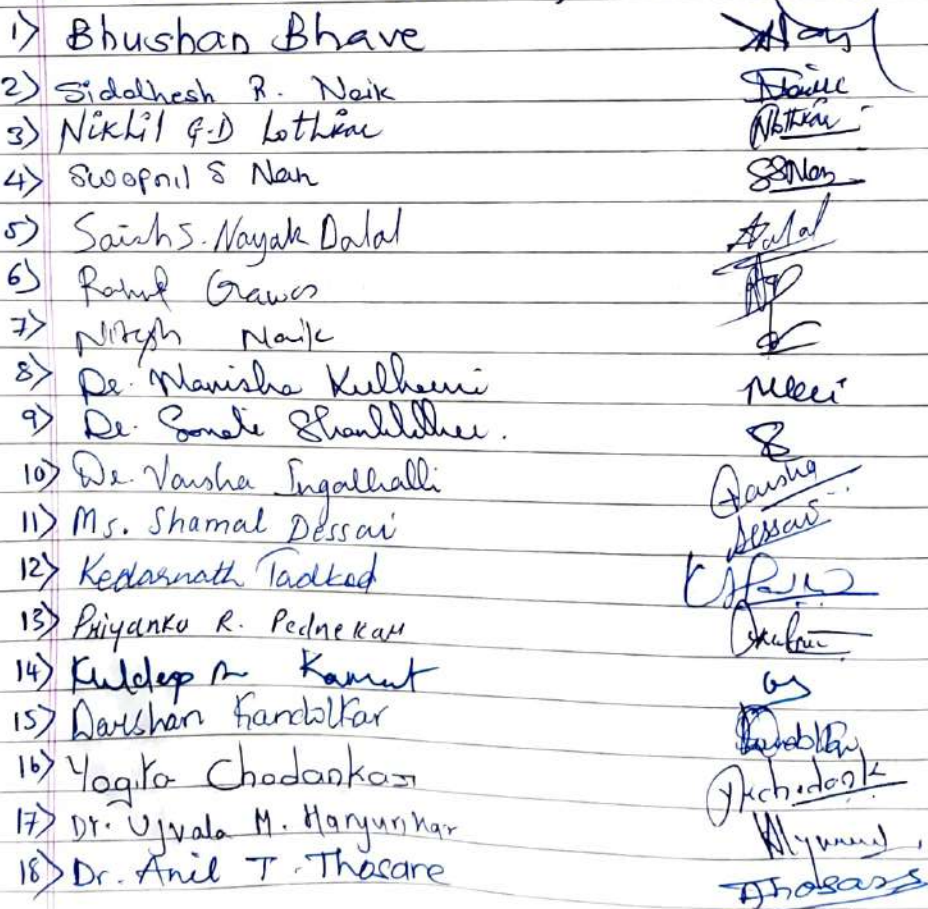 1) Bhushan Bhave
2) Siddhesh R. Naik
3) Nikhil G.D Lotlikar Nlotlikar
4) Swapnil S Naik SSNaik
5) Saish S. Nayak Dalal Dalal
6) Rahul Gawas
7) Nitesh Naik
8) Dr. Manisha Kulkarni
9) Dr. Sonali
10) Dr. Varsha Ingalhalli Varsha
11) Ms. Shamal Dessai Dessai
12) Kedarnath Tadkod
13) Priyanka R. Pednekar
14) Kuldeep Kamat
15) Darshan Kandolkar Kandolkar
16) Yogita Chodankar
17) Dr. Ujvala M. Hanjunkar
18) Dr. Anil T. Thosare Thosare